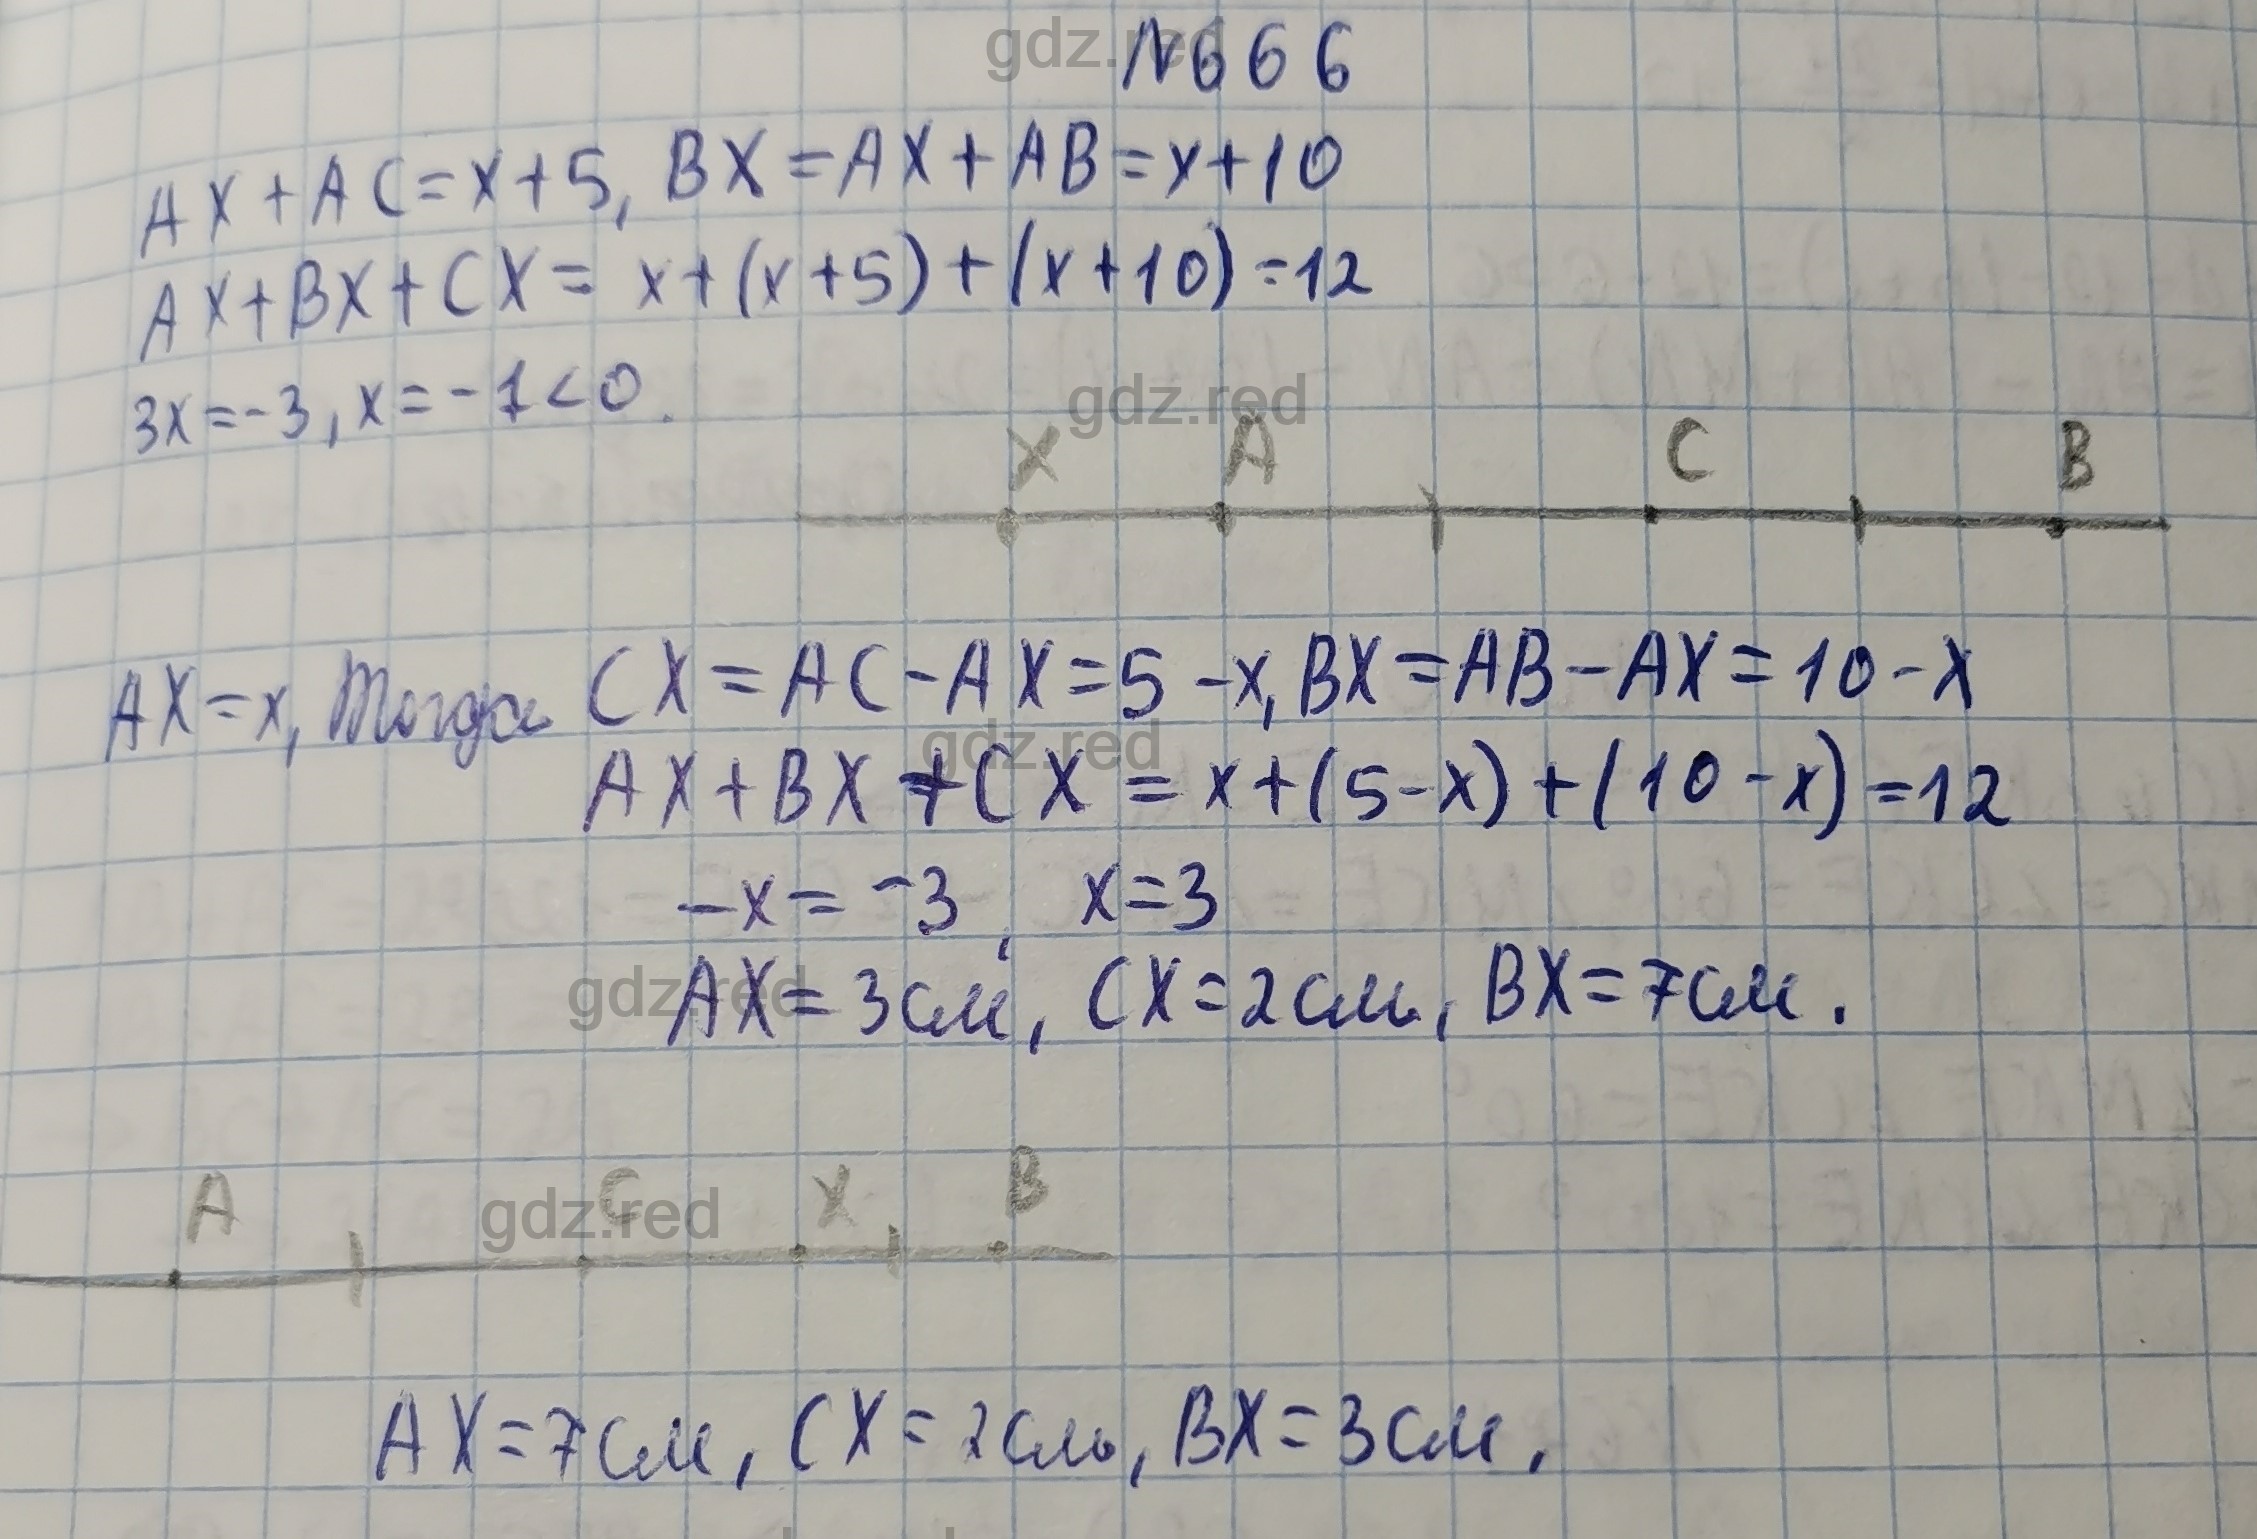 N666
AX+AC=x+5, BX=AX+AB=x+10
AX+BX+CX= x+(x+5)+(x+10)=12
3x=-3, x=-1<0.
gdz.red
X A C B
AX=x, тогда CX=AC-AX=5-x, BX=AB-AX=10-x
gdz.red
AX+BX+CX=x+(5-x)+(10-x)=12
-x=-3, x=3
AX=3см, CX=2см, BX=7см.
gdz.red
A C X B
gdz.red
AX=7см, CX=2см, BX=3см.